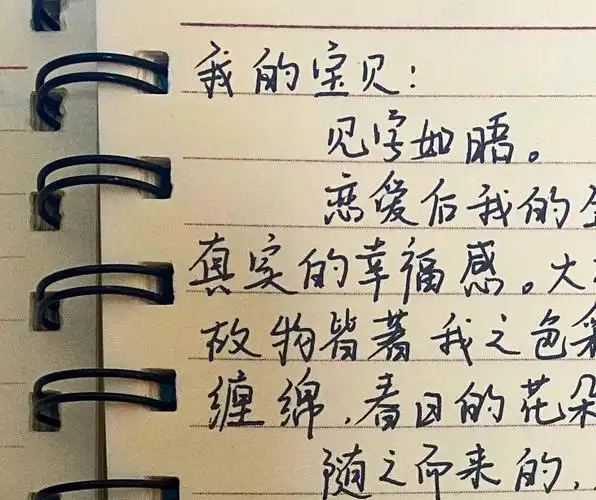 我的宝见:
见字如晤。
恋爱后我的
真实的幸福感。大
故物皆著我之色彩
缠绵,春日的花朵
随之而来的,